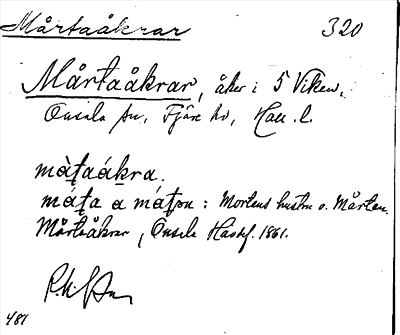 Mårtaåkrar 320
Mårtaåkrar, åker i 5 Viken,
Onsala sn, Fjäre hd, Hall. l.
màʈaákra.
máʈa a máʈɒn : Mortens hustru o. Mårten.
Mårtaåkrar, Onsala Haskf. 1861.
487